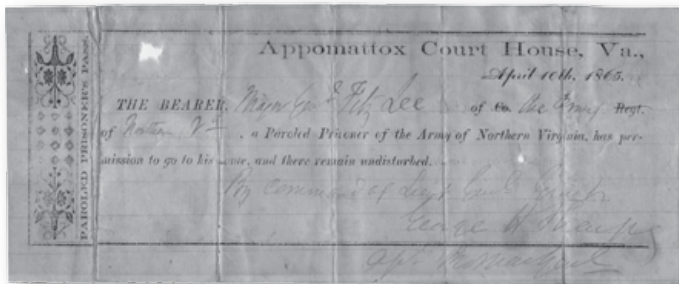 PAROLED PRISONER'S PASS.
Appomattox Court House, Va.,
April 10th, 1865.
THE BEARER, Major Genl Fitz Lee of Co. the Army Regt.
of Northern Va , a Paroled Prisoner of the Army of Northern Virginia, has per-
mission to go to his home, and there remain undisturbed.
By Command of Lieut Genl Grant
George H Sharpe